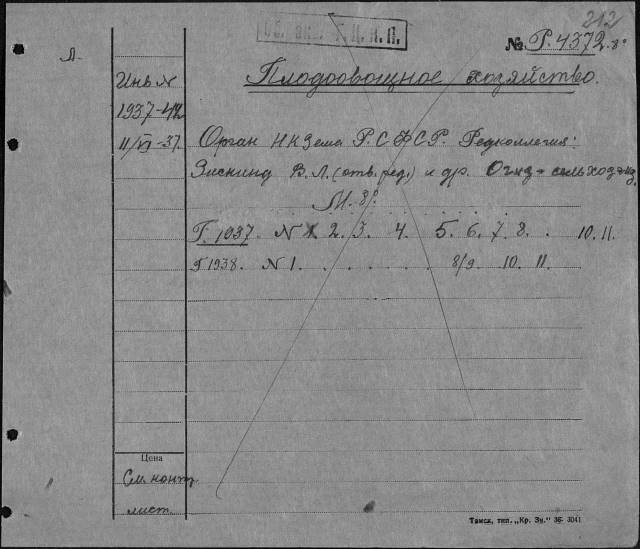 212
№ Р.4372. 8°
Л.
Плодоовощное хозяйство.
Инв №
1937-42
11/VI-37.
Орган НКЗема Р.С.Ф.С.Р. Редколлегия:
Зискинд В.Л. (отв. ред.) и др. Огиз-сельхозгиз,
М. 8°.
Г. 1937. N 1. 2. 3. 4. 5. 6. 7. 8. . 10. 11.
Г 1938. N 1. . . . . . . 8/9. 10. 11.
Цена
См. конт.
лист.
Томск, тип. „Кр. Зн.“ 36- 3041